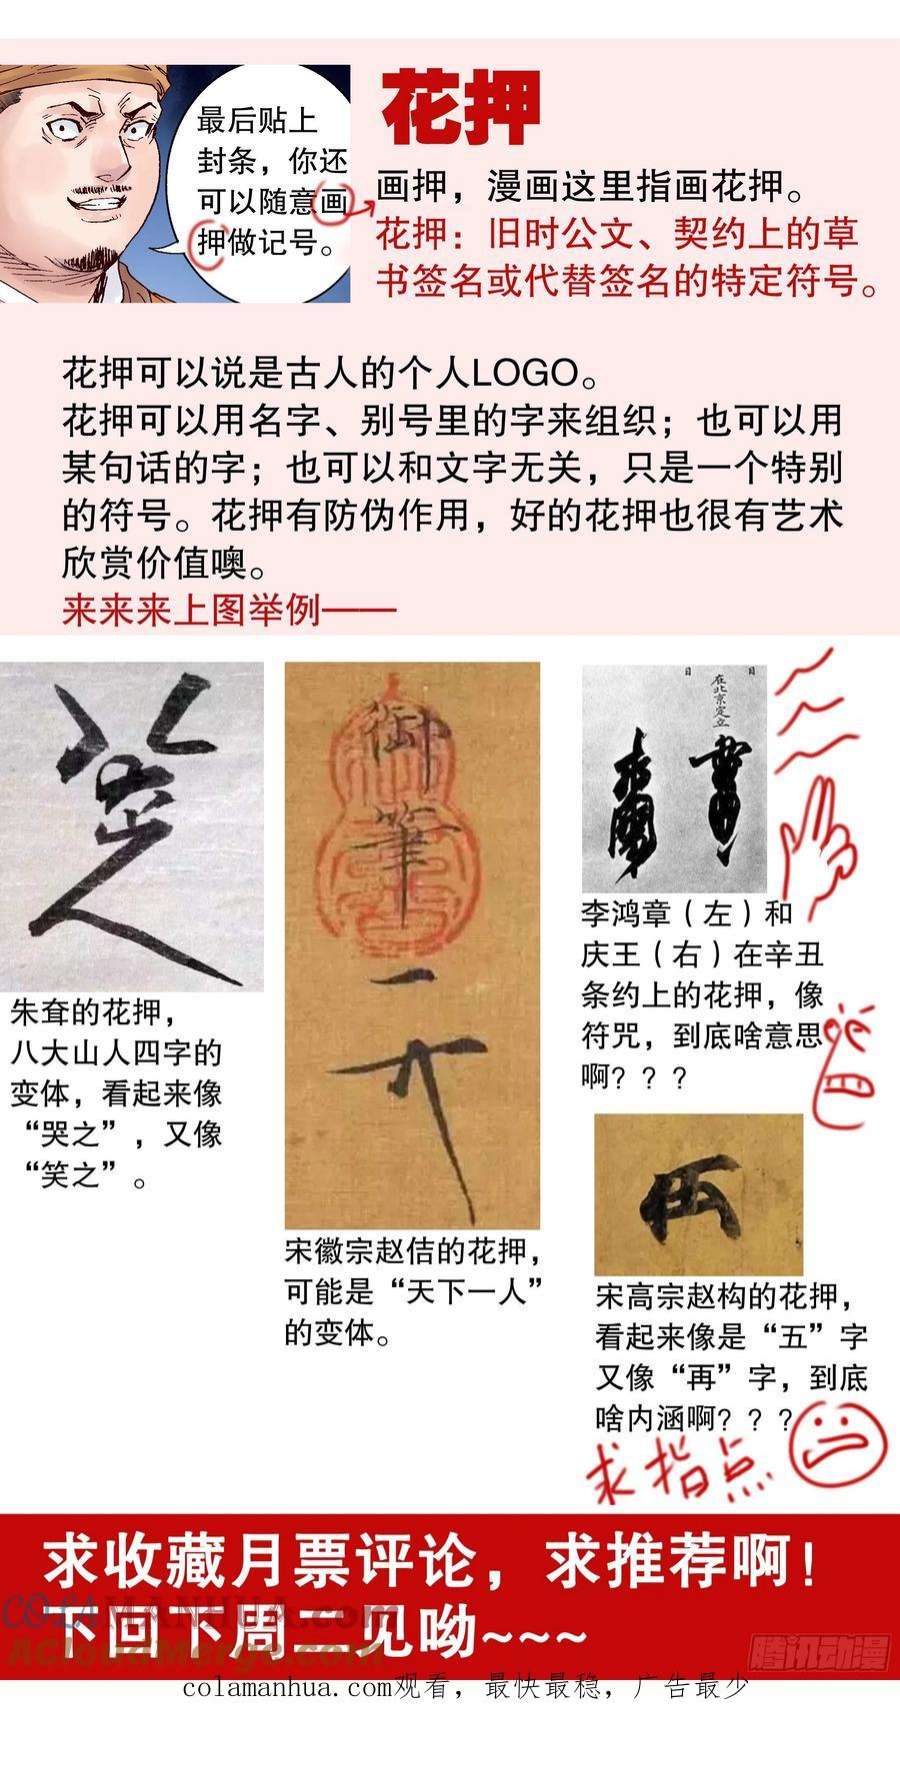 最后贴上
封条，你还
可以随意画
押做记号。
花押
画押，漫画这里指画花押。
花押：旧时公文、契约上的草
书签名或代替签名的特定符号。
花押可以说是古人的个人LOGO。
花押可以用名字、别号里的字来组织；也可以用
某句话的字；也可以和文字无关，只是一个特别
的符号。花押有防伪作用，好的花押也很有艺术
欣赏价值噢。
来来来上图举例——
朱耷的花押，
八大山人四字的
变体，看起来像
“哭之”，又像
“笑之”。
御筆
宋徽宗赵佶的花押，
可能是“天下一人”
的变体。
日
日
在北京定立
李鸿章（左）和
庆王（右）在辛丑
条约上的花押，像
符咒，到底啥意思
啊？？？
宋高宗赵构的花押，
看起来像是“五”字
又像“再”字，到底
啥内涵啊？？？
求指点
求收藏月票评论，求推荐啊！
下回下周二见呦~~~
COLAMANHUA.com
ACloudMerge.com
腾讯动漫
colamanhua.com观看，最快最稳，广告最少